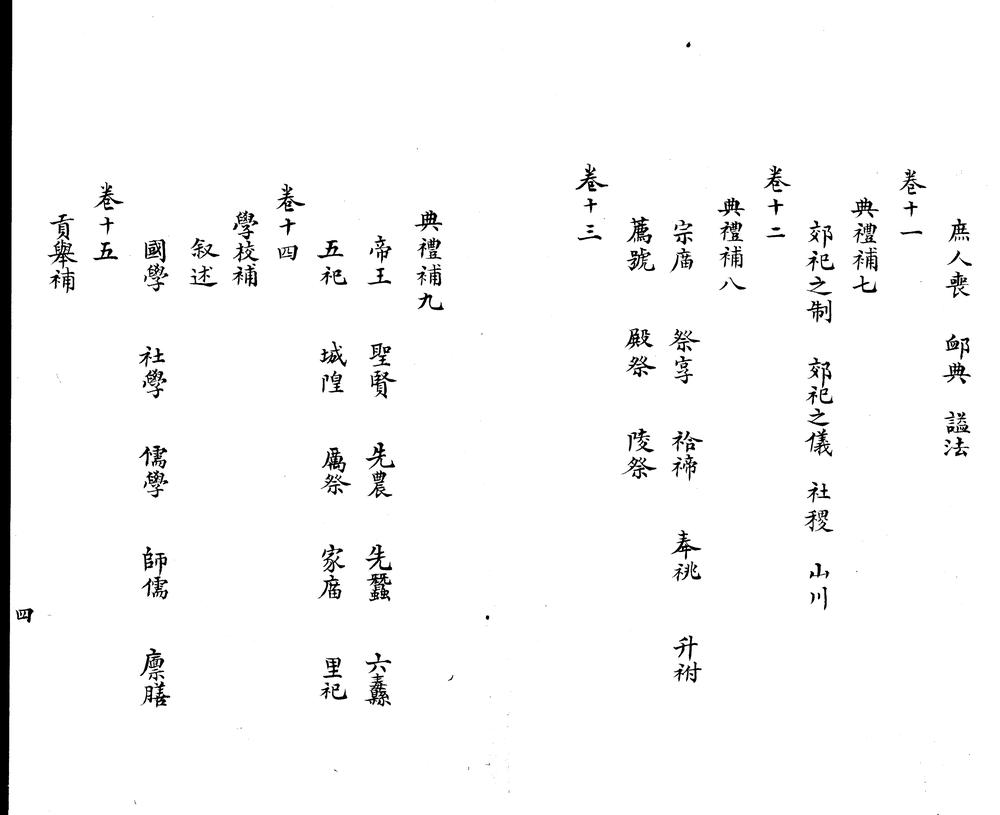 庶人喪 䘏典 謚法
卷十一
典禮補七
郊祀之制 郊祀之儀 社稷 山川
卷十二
典禮補八
宗庿 祭享 祫禘 奉祧 升祔
薦號 殿祭 陵祭
卷十三
典禮補九
帝王 聖賢 先農 先蠶 六纛
五祀 城隍 厲祭 家庿 里祀
卷十四
學校補
叙述
國學 社學 儒學 師儒 廪膳
卷十五
貢舉補
四